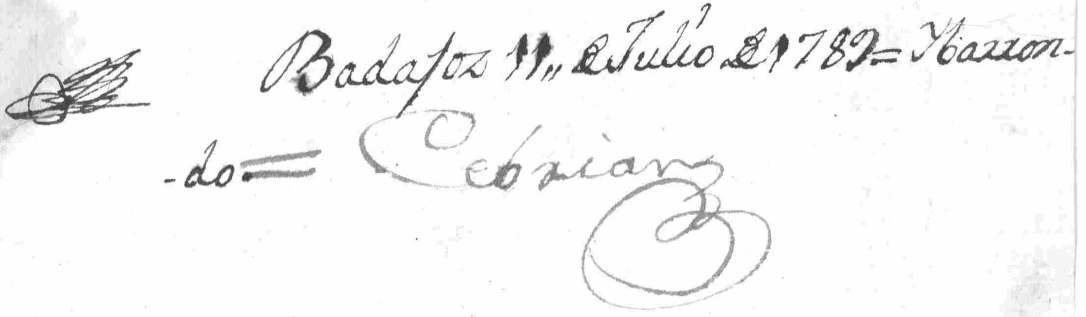 Badajoz 11,, de Julio de 1789= Ybarron-
-do= Cebrian